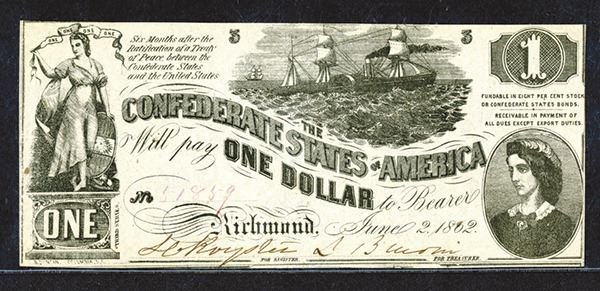 ONE ONE ONE ONE
Six Months after the
Ratification of a Treaty
of Peace, between the
Confederate States
and the United States
3 3
1
FUNDABLE IN EIGHT PER CENT STOCK
OR CONFEDERATE STATES BONDS.
RECEIVABLE IN PAYMENT OF
ALL DUES EXCEPT EXPORT DUTIES.
THE
CONFEDERATE STATES OF AMERICA
Will pay ONE DOLLAR to Bearer
No 51859
Richmond, June 2, 1862
ONE
THIRD SERIES.
FOR REGISTER. FOR TREASURER.
COLUMBIA, S.C.